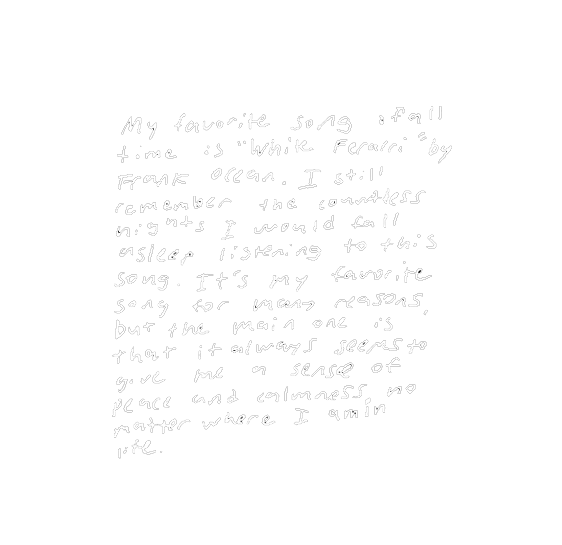 My favorite song of all
time is "White Ferarri" by
Frank Ocean. I still
remember the countless
nights I would fall
asleep listening to this
song. It's my favorite
song for many reasons,
but the main one is
that it always seems to
give me a sense of
peace and calmness no
matter where I am in
life.